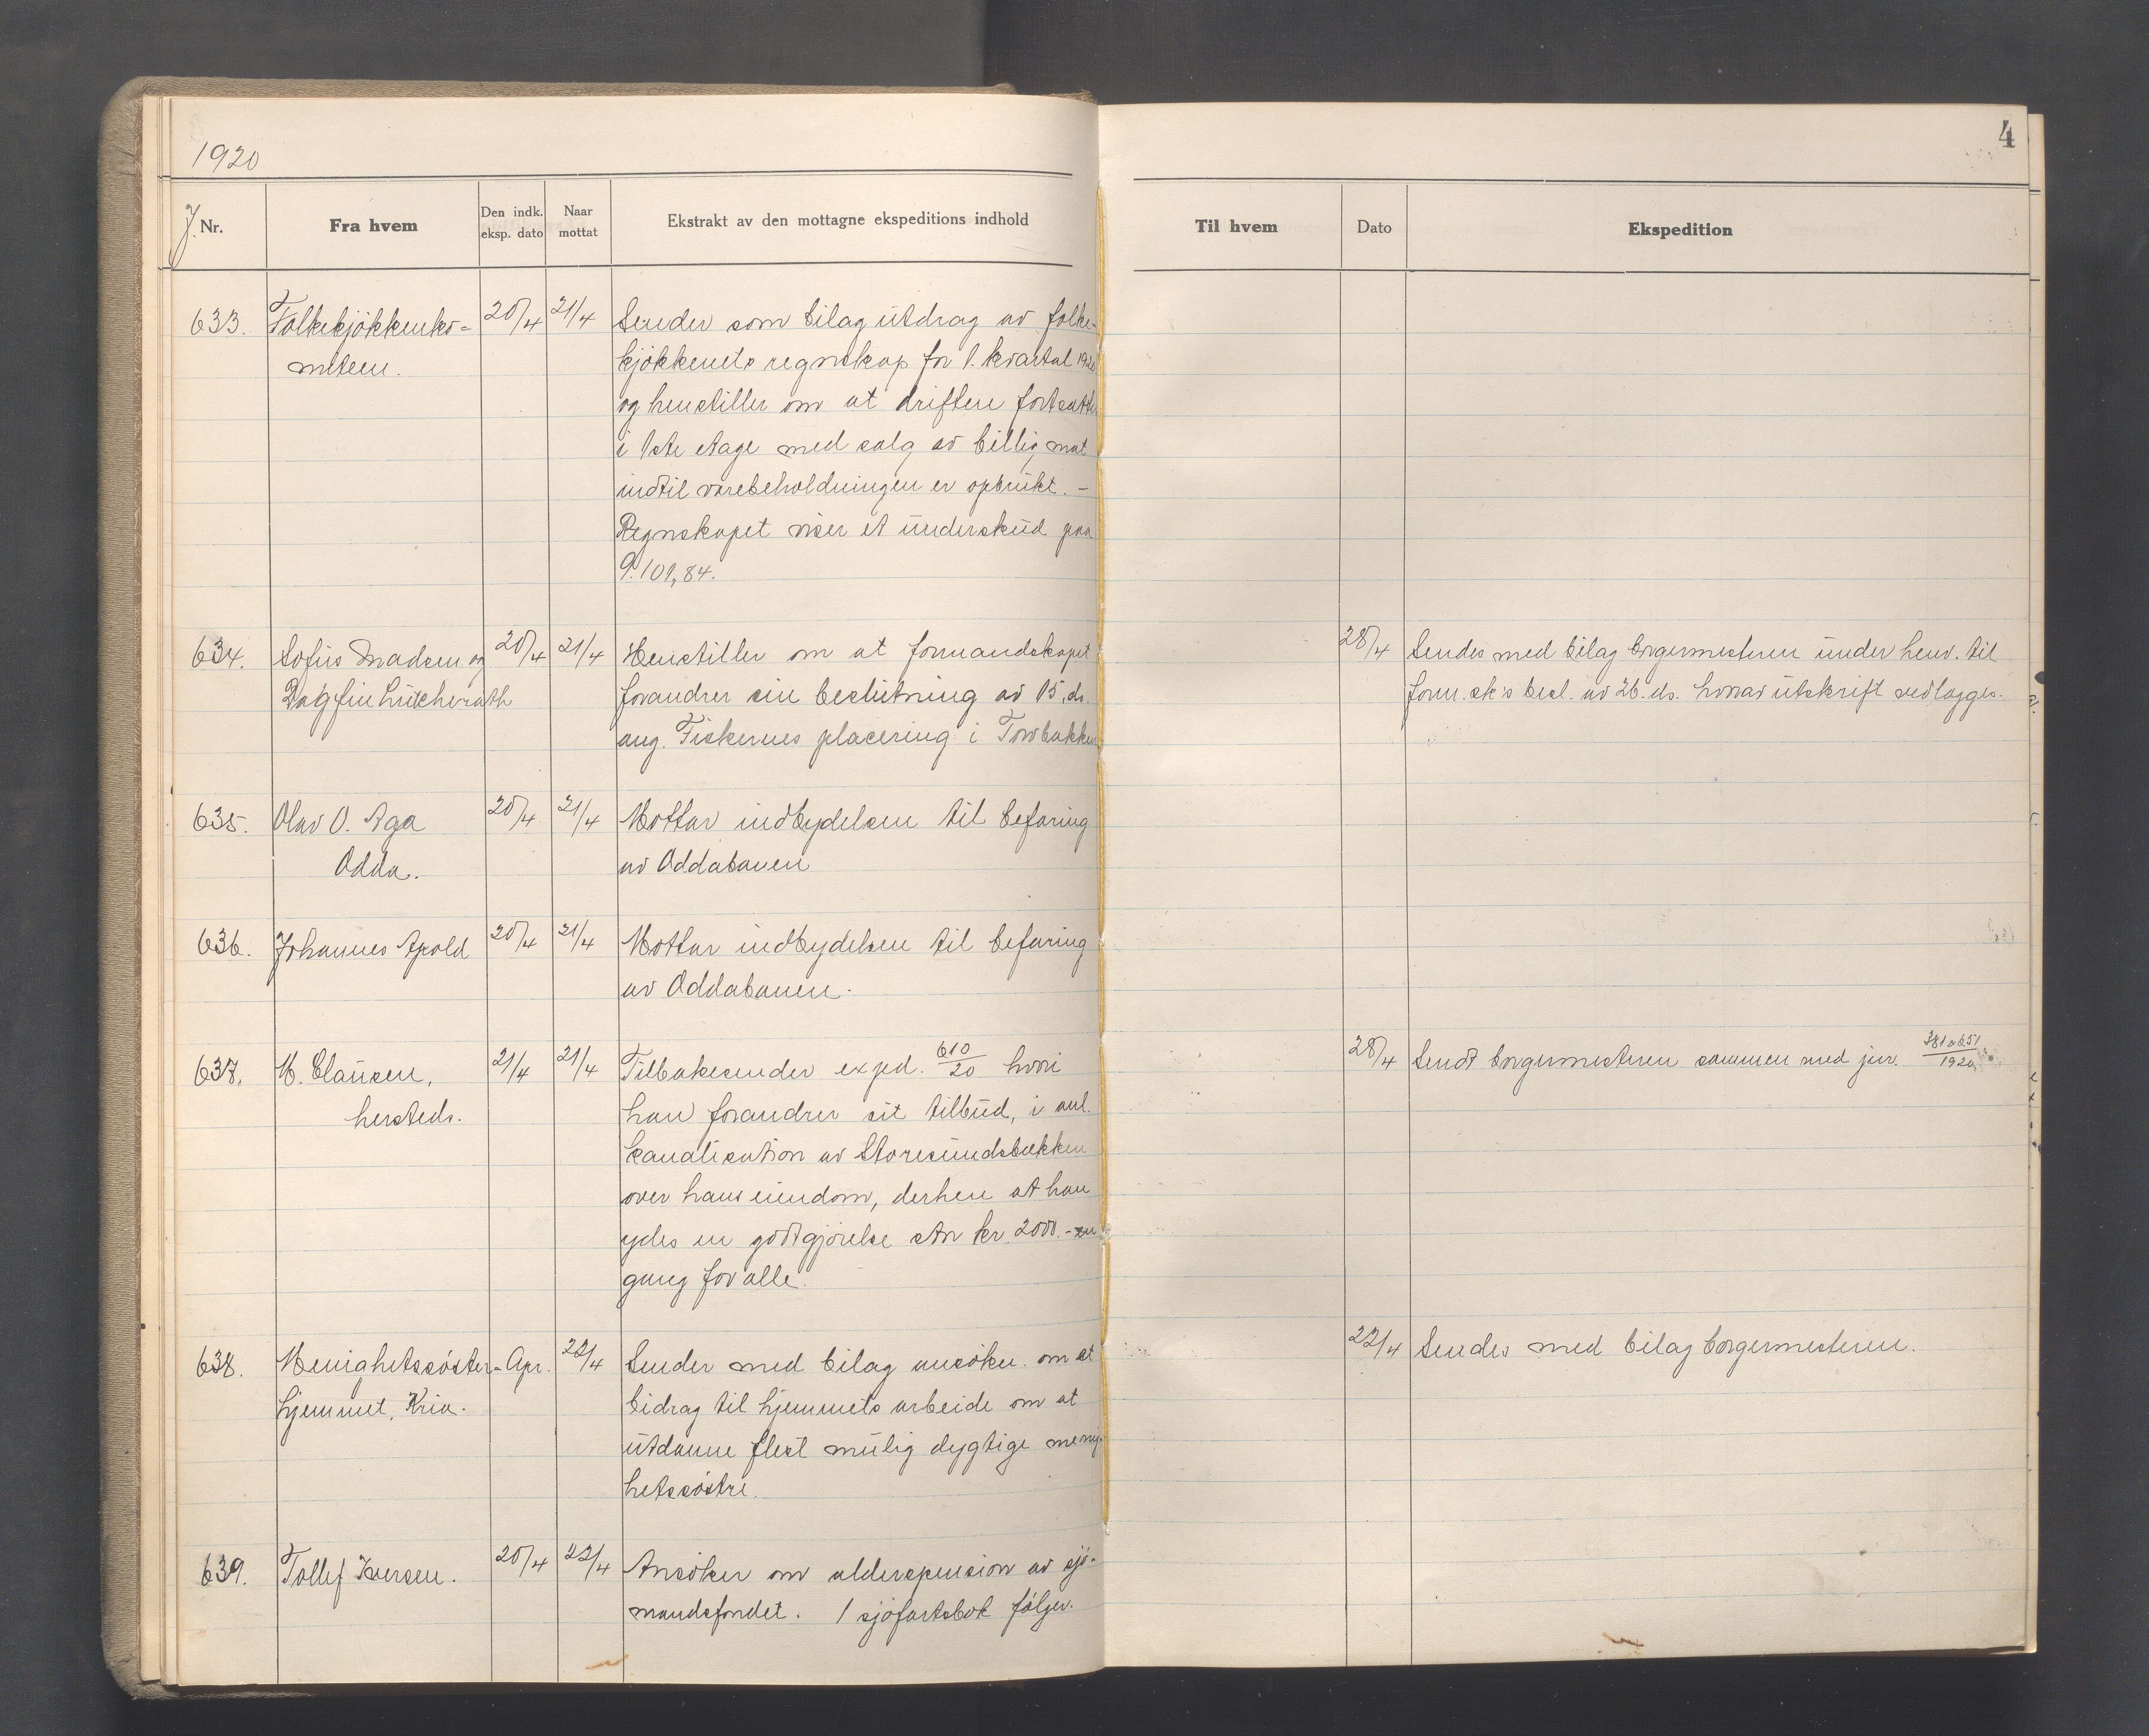 1920
4
J. Nr.
Fra hvem
Den indk. eksp. dato
Naar mottat
Ekstrakt av den mottagne ekspeditions indhold
Til hvem
Dato
Ekspedition
633. Folkekjøkkenko- 20/4 21/4 Sender som bilag utdrag av folke-
miteen. kjøkkenets regnskap for 1. kvartal 1920
og henstiller om at driften fortsætter
i 1ste etage med salg av billig mat
indtil varebeholdningen er opbrukt. -
Regnskapet viser et underskud paa
9.109,84.
634. Sofus Madsen og 20/4 21/4 Henstiller om at formandskapet 28/4 Sendes med bilag borgermesteren under henv. til
Dagfin forandrer sin beslutning av 15. ds. form.sk's besl. av 26. ds. hvorav utskrift vedlægges.
ang. Fiskernes placering i Torvbakken
635. Olav O. Aga 20/4 21/4 Mottar indbydelsen til befaring
Odda. av Oddabanen
636. Johannes Apold 20/4 21/4 Mottar indbydelsen til befaring
av Oddabanen.
637. M. Clausen, 21/4 21/4 Tilbakesender exped. 610/20 hvori 28/4 Sendt borgermesteren sammen med jnr. 381 o 651/1920
hersteds. han forandrer sit tilbud, i anl.
kanalisation av Storesundsbækken
over hans eiendom, derhen at han
ydes en godtgjørelse stor kr. 2000.- en
gang for alle.
638. Menighetssøster- Apr. 22/4 Sender med bilag ansøkn. om et 22/4 Sendes med bilag borgermesteren.
hjemmet, Kria. bidrag til hjemmets arbeide om at
utdanne flest mulig dygtige menig-
hetssøstre.
639. Tollef Iversen. 20/4 22/4 Ansøker om alderspension av sjø-
mandsfondet. 1 sjøfartsbok følger.